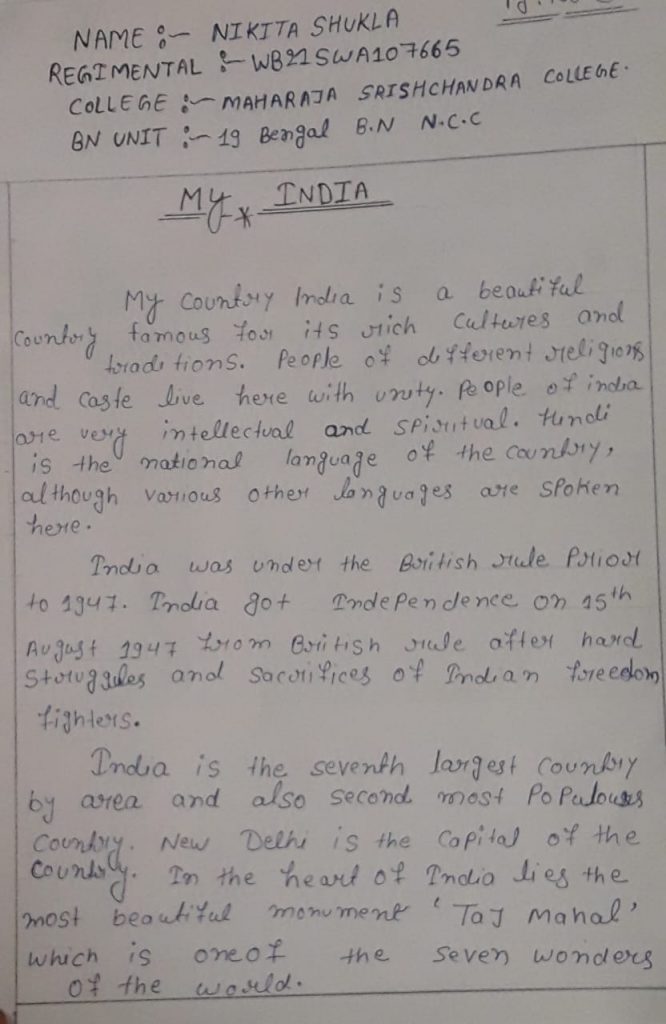 NAME :- NIKITA SHUKLA
REGIMENTAL :- WB21SWA107665
COLLEGE :- MAHARAJA SRISHCHANDRA COLLEGE.
BN UNIT :- 19 Bengal B.N N.C.C
MY * INDIA
My country India is a beautiful
country famous for its rich cultures and
traditions. People of different religions
and caste live here with unity. People of india
are very intellectual and spiritual. Hindi
is the national language of the country,
although various other languages are spoken
here.
India was under the British rule Prior
to 1947. India got Independence on 15th
August 1947 from British rule after hard
Struggles and sacrifices of Indian freedom
fighters.
India is the seventh largest country
by area and also second most Populous
Country. New Delhi is the capital of the
Country. In the heart of India lies the
most beautiful monument 'Taj Mahal'
which is one of the seven wonders
of the world.